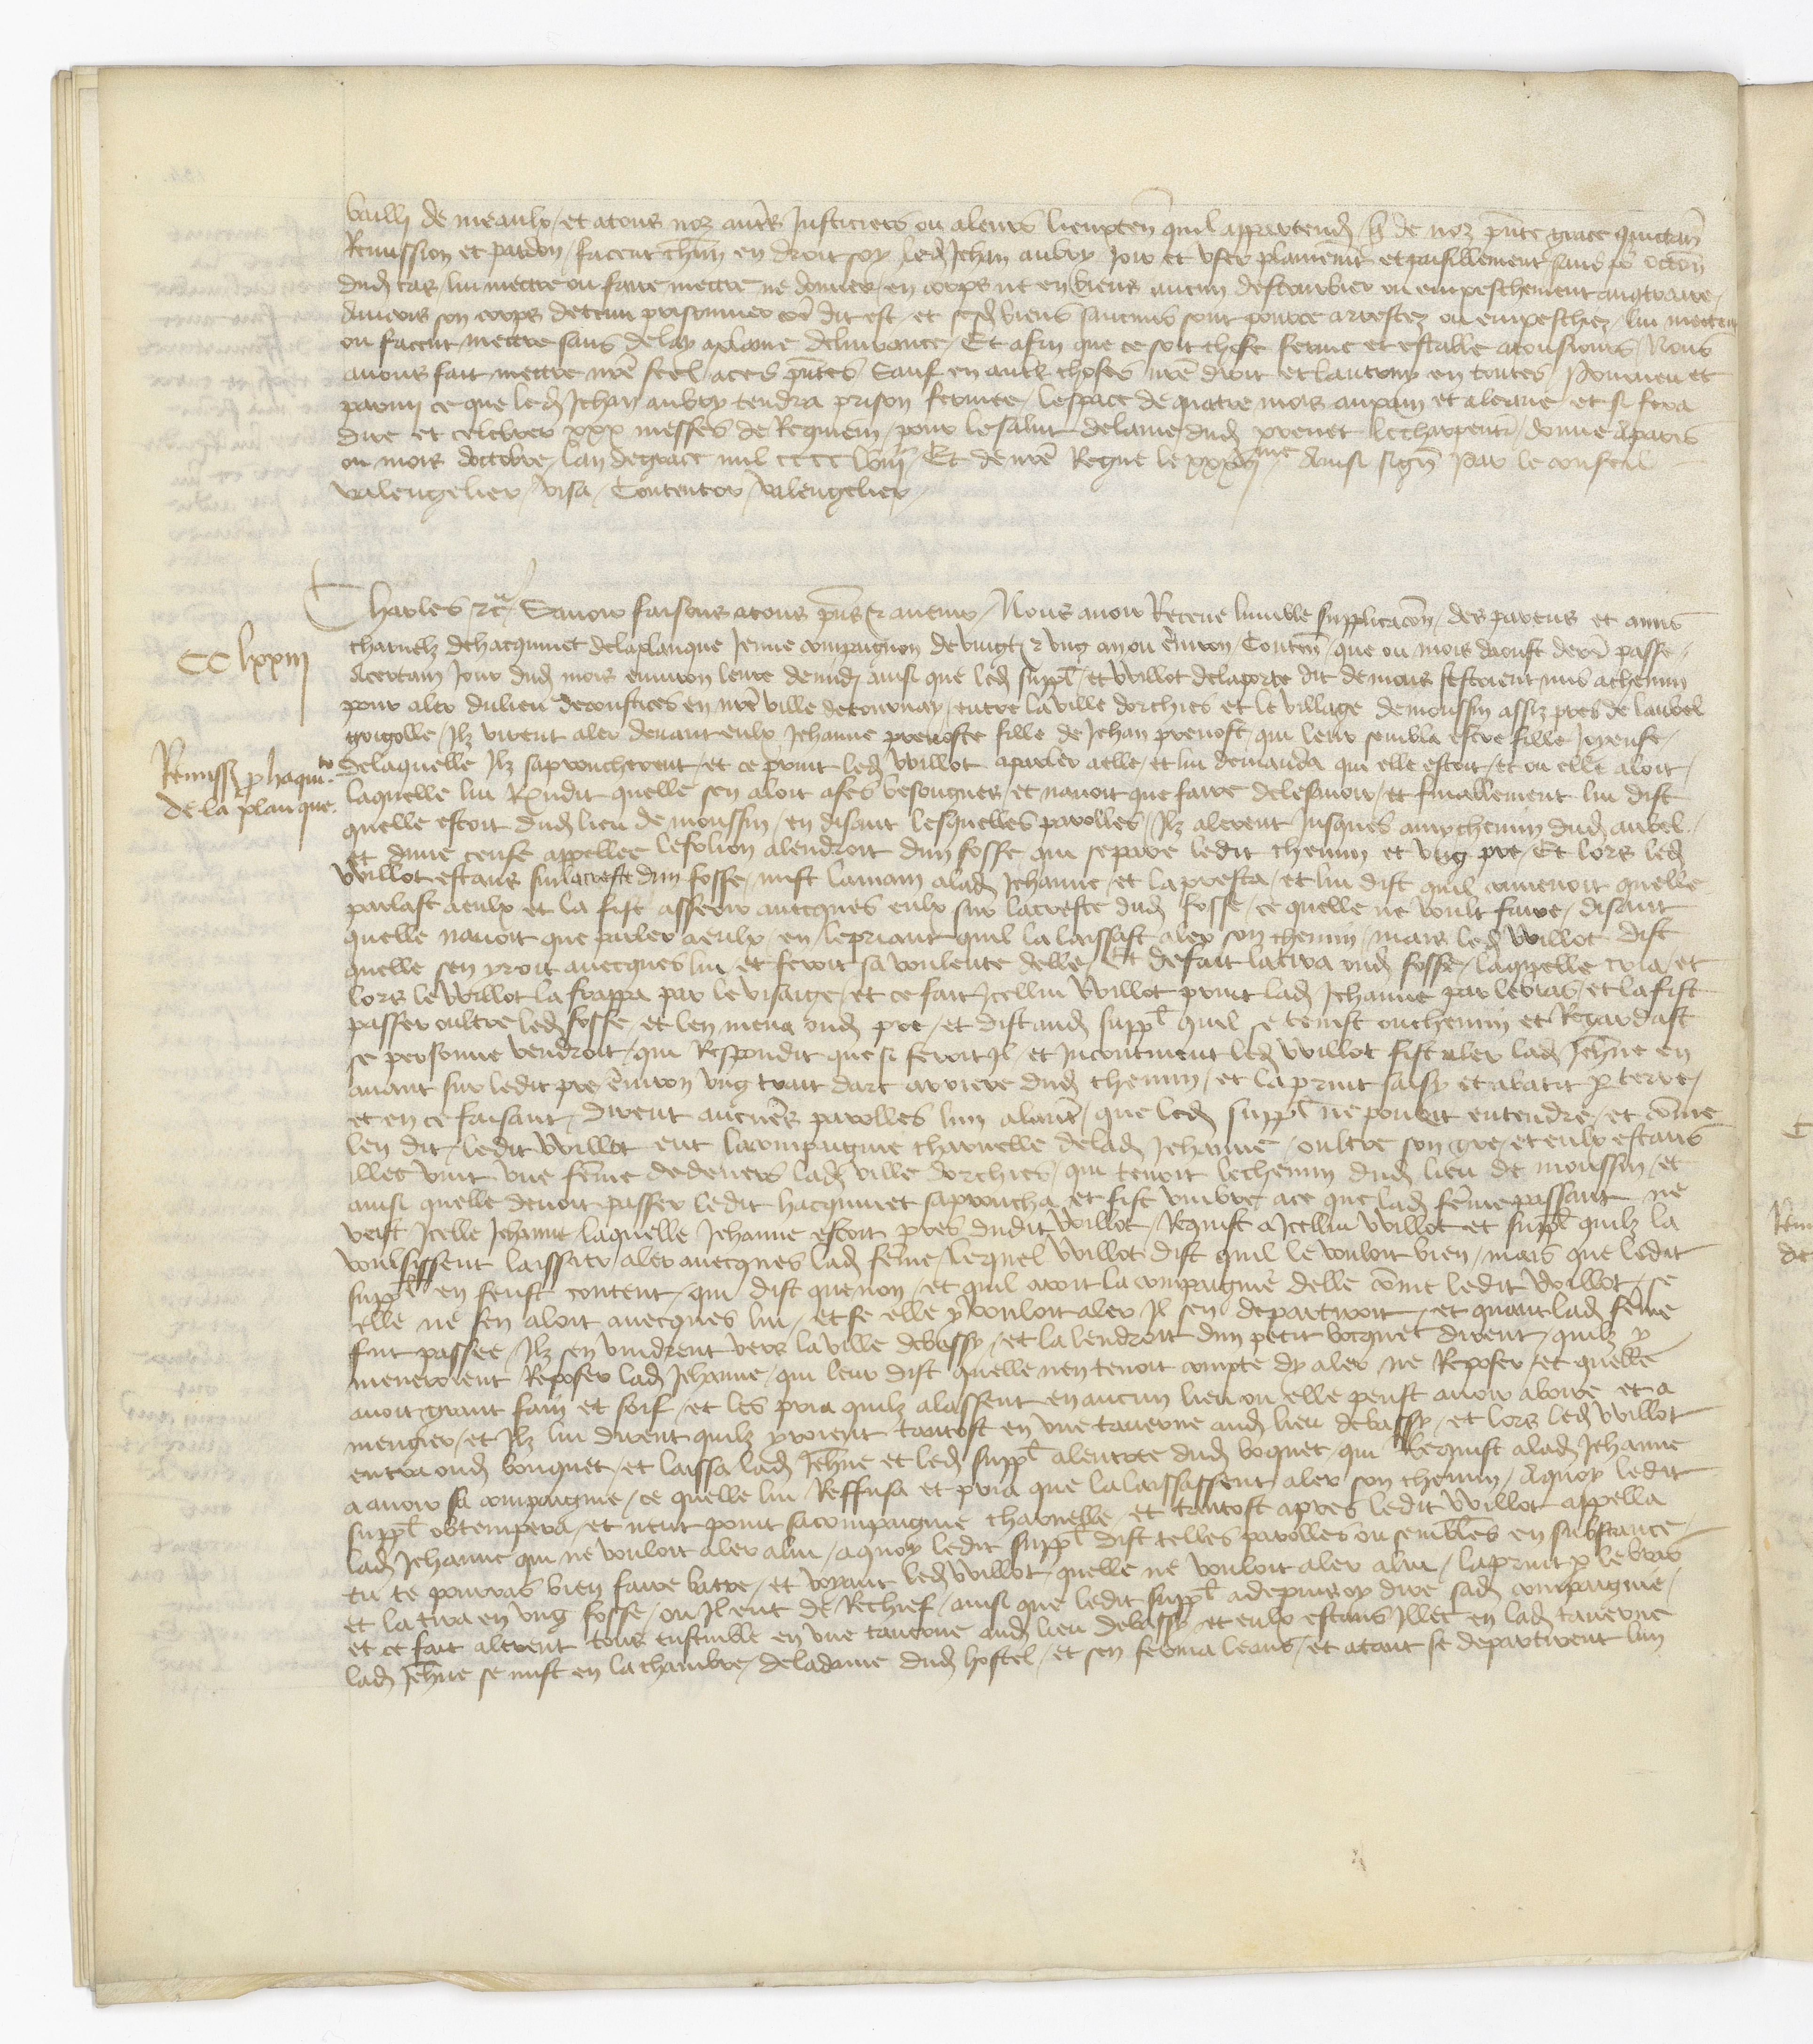 bailli de meaulx et a tous noz autrēs Justiciers ou a leurs lieuxten̄ quil appartendr̄ que de noz pn̄te grace quictan̄
Remission et pardon facent chūn en droit soy led Jehan aubry Joir et user plainemēt et paisiblement sans po~ occōn
dud cas lui mettre ou faire mettre ne donner en corps ne en biens aucun destourbier ou empeschement au contraire
Aincois son corps detenu prisonnier cō~ dit est et sesd biens saucuns sont pource arrestez ou empeschez lui mettent
ou facent mettre sans delay a plaine delivrance Et afin que ce soit chose ferme et estable a tousiours Nous
avons fait mettre nrē seel a ces pn̄tes Sauf en autrēs choses nrē droit et lautruy en toutes Pourveu et
parmi ce que led Jehan aubry tendra prison fermee lespace de quatre mois au pain et a leaue et si fera
dire et celebrer xxx messes de Requiem pour le salut de lame dud prevet le charpentr̄ donne a paris
ou mois doctobre lan de grace mil cccc lviij Et de nrē Regne le xxxvj me Ainsi signē Par le conseil
valengelier visa Contentor valengelier
Charles etc̄ Savoir faisons a tous pn̄s et avenir Nous avoir Receue lumble supplicacōn des parens et amis
charnelz de hacquinet de la planque Jeune compaignon de vingt et ung an ou environ Conten̄ que ou mois daoust derr̄ passe
CC lxxiij
A certain Jour dud mois environ leure de midj ainsi que led suppl̄ et Willot de la porte dit de mons sestoient mis a chemin
pour aler du lieu de coustices en nrē ville de tournay entre la ville dorchies et le village de moussin assiz pres de laubel
gorgolle Ilz virent aler devant eulx Jehanne prevoste fille de Jehan prevost qui leur sembla estre fille Joyeuse
Remissio p~ haquinto
de la planque
de laquelle Ilz saproucherent et ce print led Willot a parler a elle et lui demanda qui elle estoit et ou elle aloit
laquelle lui Rx̄ndit quelle sen aloit a ses besongnes et navoit que faire de le savoir et finablement lui dist
quelle estoit dud lieu de moussin en disant lesquelles parolles Ilz alerent Jusques au chemin dud aubel
et dune cense appellee lesolion a lendroit dun fosse qui separe ledit chemin et ung pre Et lors led
Willot estans sur la creste dun fosse mist la main a lad Jehanne et la presta et lui dist quil convenoit quelle
parlast a eulx et la fist asseoir avecques eulx sur la creste dud fosse ce quelle ne voult faire disant
quelle navoit que parler a eulx en le priant quil la laissast aler son chemin mais led Willot dist
quelle sen yroit avecques lui et feroit sa voulente delle Et de fait la tira oud fosse laquelle cria et
lors le Willot la frappa par le visaige et ce fait Icellui Willot print lad Jehanne par le bras et la fist
passer oultre led fosse et len mena oud pre et dist aud suppl̄ quil se tenist ou chemin et Regardast
se personne vendroit qui Respondit que si feroit Il et Incontinent led Willot fist aler lad Jehn̄e en
avant sur ledit pre environ ung trait darc arriere dud chemin et la print saisy et abatit p~ terre
et en ce faisant dirent aucunēs parolles lun a lautrē que led suppl̄ ne povoit entendre et cōme
len dit ledit Willot eut la compaignie charnelle de lad Jehanne oultre son gre et eulx estans
illec vint une fēme de devers lad ville dorchies qui tenoit le chemin dud lieu de moussin et
ainsi quelle devoit passer ledit hacquinet saproucha et fist umbre a ce que lad fēme passant ne
veist Icelle Jehanne laquelle Jehanne estoit pres dudit Willot Requist a Icellui Willot et suppl̄ quilz la
voulsissent laissier aler avecques lad fēme lequel Willot dist quil le vouloit bien mais que ledit
suppl̄ en feust content qui dist que non et quil avoit la compaignie delle cōme ledit Willot se
elle ne sen aloit avecques lui et se elle y vouloit aler Il sen departiroit et quant lad fēme
fut passee Ilz sen vindrent vers la ville de bassy et la lendroit dun petit bocquet dirent quilz y
menerroient Reposer lad Jehanne qui leur dist quelle nen tenoit compte dy aler ne Reposer et quelle
avoit grant fain et soif et les pria quilz alassent en aucun lieu ou elle peust avoir a boire et a
mengier et Ilz lui dirent quilz yroient tantost en une taverne aud lieu de bassy et lors led Willot
entra oud bouquet et laissa lad Jehn̄e et led suppl̄ a lentree dud boquet qui Requist a lad Jehanne
a avoir sa compaignie ce quelle lui Reffusa et pria que la laissassent aler son chemin A quoy ledit
suppl̄ obtempera et neut point sa compaignie charnelle et tantost apres ledit Willot appella
lad Jehanne qui ne vouloit aler a lui a quoy ledit suppl̄ dist telles parolles ou semblēs en substance
tu te pourras bien faire batre et voyant led Willot quelle ne vouloit aler a lui la print p~ le bras
et la tira en ung fosse ou Il eut de Rechief ainsi que ledit suppl̄ a depuis oy dire sad compaignie
et ce fait alerent tous ensemble en une taverne aud lieu de bassy et eulx estans Illec en lad taverne
lad Jehn̄e se mist en la chambre de la dame dud hostel et sen ferma leans et atant se departirent lun